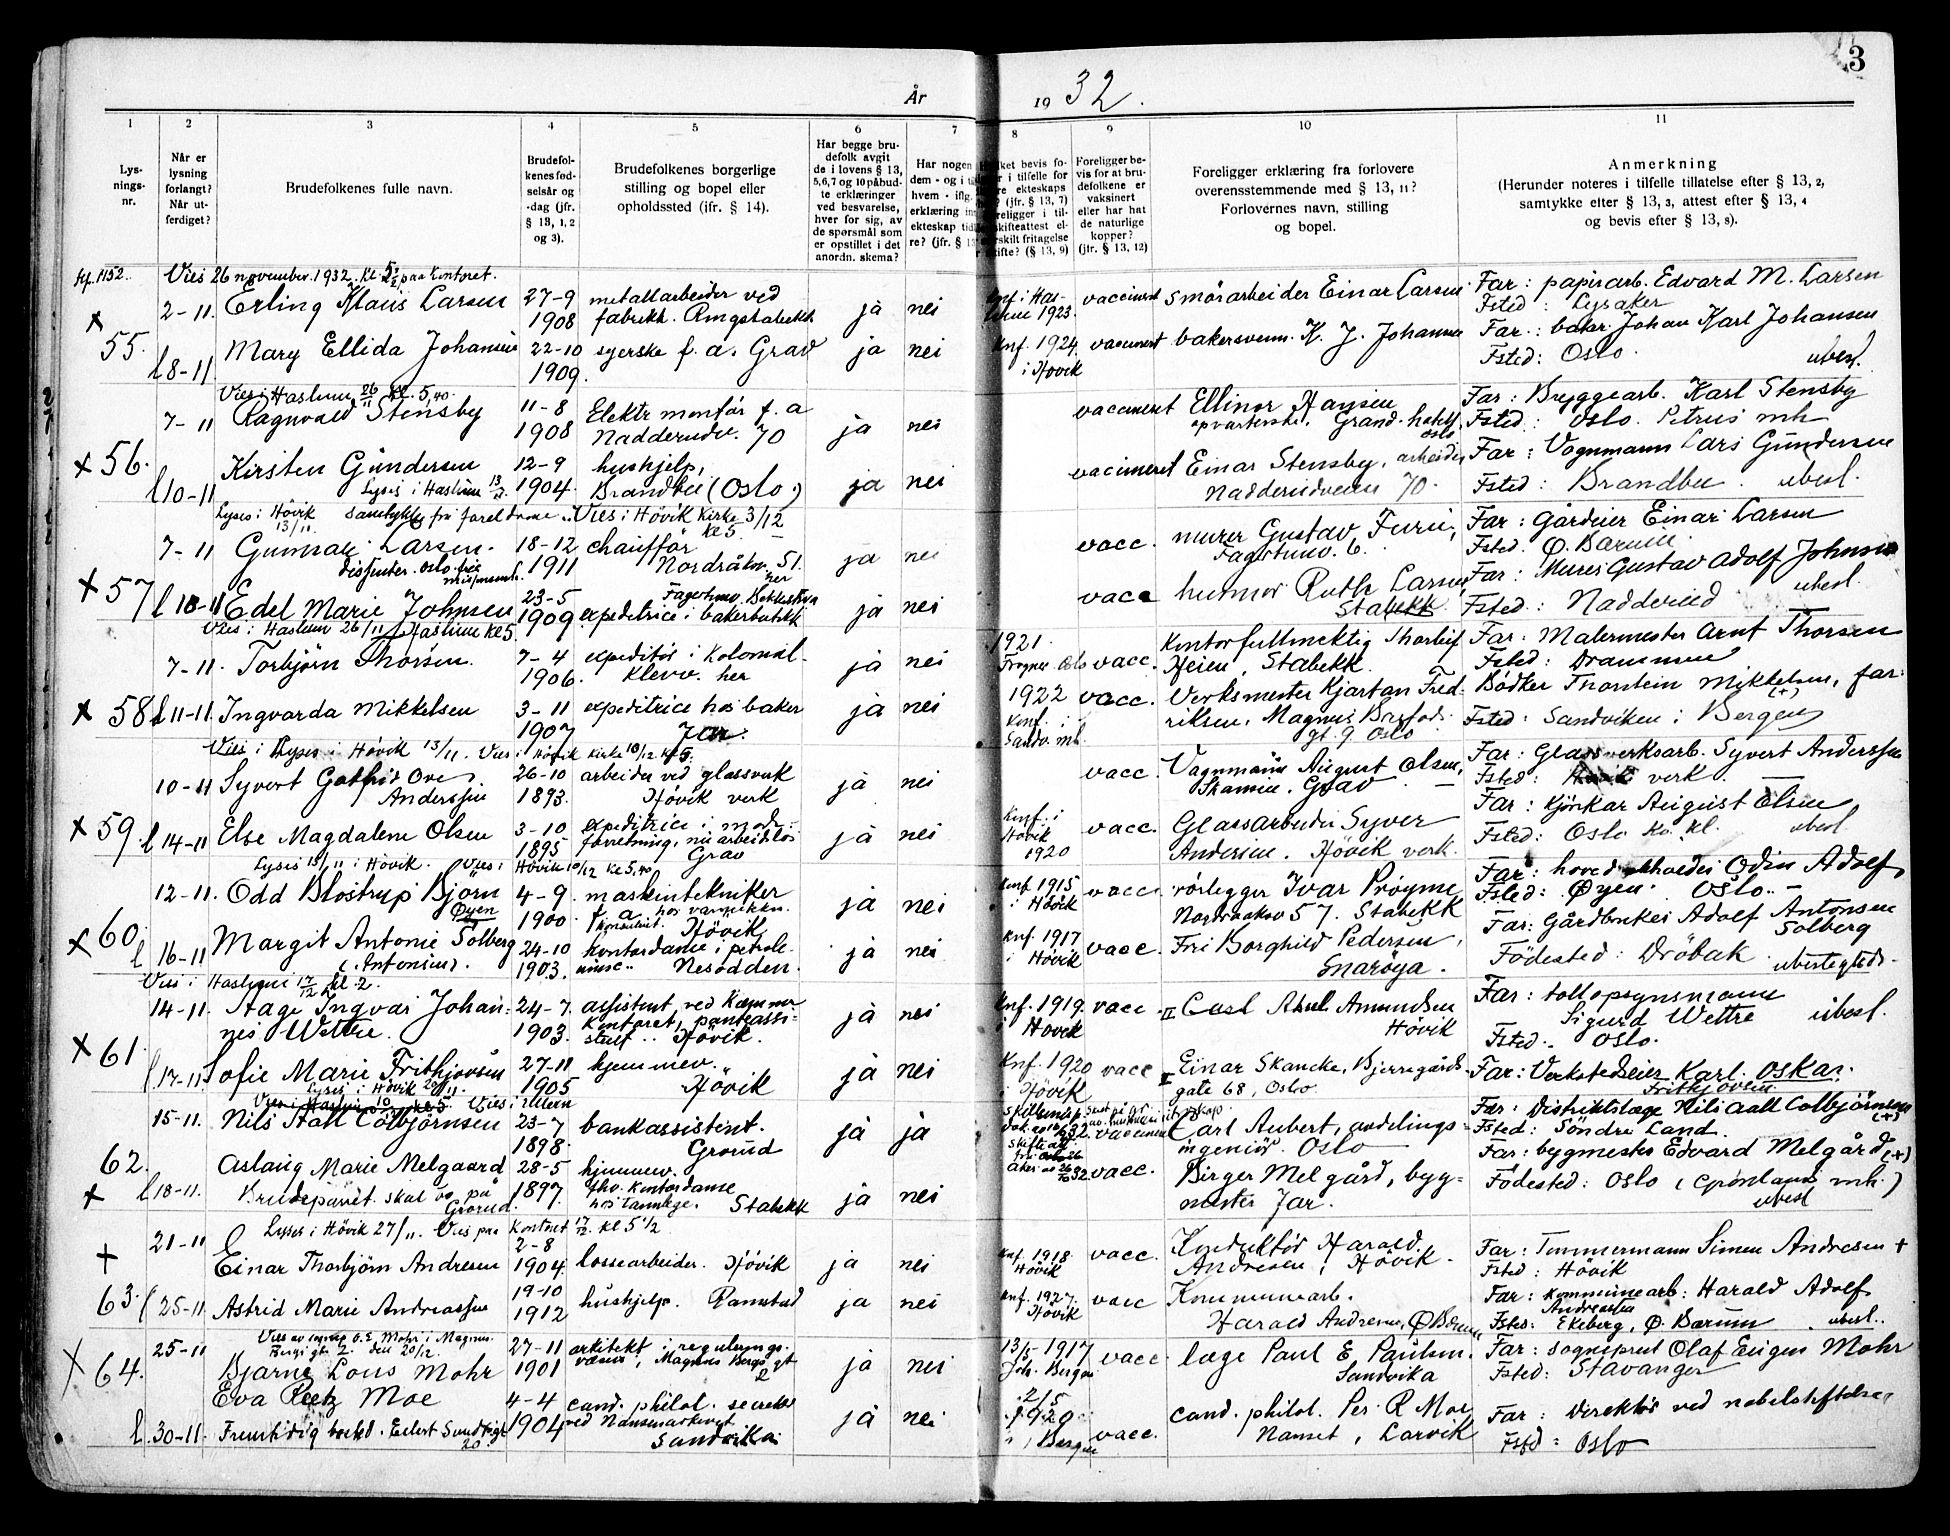 3
År 1932.
1 2 3 4 5 6 7 8 9 10 11
Lys-
nings-
nr.
Når er
lysning
forlangt?
Når ut-
ferdiget?
Brudefolkenes fulle navn.
Brudefol-
kenes fød-
selsår og
-dag (jfr.
§ 13, 1, 2
og 3).
Brudefolkenes borgerlige
stilling og bopel eller
opholdssted (ifr. § 14).
Har begge bru-
defolk avgit
de i lovens § 13,
5, 6, 7 og 10 påbud-
te erklæringer
ved besvarelse,
hver for sig, av
de spørsmål som
er opstillet i det
anordn. skema?
Har nogen
dem - og i
hvem - iflg.
erklæring
ekteskap
re? (jfr. §
bevis fo-
i tilfelle for
ekteskaps
? (jfr. § 13, 7)
religger i til-
skifteattest el-
rskilt fritagelse
ifte? (§ 13, 9)
Foreligger be-
vis for at bru-
defolkene er
vaksinert
eller har hat
de naturlige
kopper?
(jfr. § 13, 12)
Foreligger erklæring fra forlovere
overensstemmende med § 13, 11?
Forlovernes navn, stilling
og bopel.
Anmerkning
(Herunder noteres i tilfelle tillatelse efter § 13, 2,
samtykke efter § 13, 3, attest efter § 13, 4
og bevis efter § 13, 8).
Vies 26 november 1932 kl. 5½ paa kontoret.
x 55.
2-11. Erling Klaus Larsen 27-9 1908 metallarbeider ved
fabrikk. Ringstabekk ja nei
1923. vaccinert smörarbeider Einar Larsen Far: papirarb. Edvard M. Larsen
Fsted: Lysaker
l 8-11 Mary Ellida Johansen 22-10 1909. syerske f. a. Grav ja nei
Knf. 1924. i Hövik vaccinert bakersvenn. K. J. Johansen Far: baker Johan Karl Johansen
Fsted: Oslo. ubesl.
Vies i Haslum 26/11 kl. 5,40.
x 56.
7-11 Ragnvald Stensby 11-8 1908 Elektr. montör f. a
Nadderudv. 70 ja nei
vaccineret Ellinor Hansen
opvarterske, Grand hotell
Oslo Far: Bryggearb. Karl Stensby
Fsted: Oslo. Petrus mh
l 10-11 Kirsten Gundersen 12-9 1904. hushjelp,
Brandbu (Oslo) ja nei
vaccineret Einar Stensby, arbeider
Nadderudveien 70. Far: Vognmann Lars Gundersen
Fsted: Brandbu. ubesl.
Lyses i Haslum 13/11
Lyses i Hövik 13/11 samtykke fra foreldrene. Vies i Hövik kirke 3/12
kl 5
x 57
7-11 Gunnar Larsen. 18-12 1911 chaufför
Nordråkv. 51. her ja nei
dissenter. Oslo frie
vacc. murer Gustav Furu,
Fagertunv. 6. Far: Gårdeier Einar Larsen
Fsted. Ø. Bærum
l 10-11 Edel Marie Johnsen 23-5 1909 Fagertunv. Bekkestua
expeditrice i bakerbutikk ja nei
vacc husmor Ruth Larsen,
Stabekk. Far: Murer Gustav Adolf Johnsen
Fsted: Nadderud ubesl.
Vies i Haslum 26/11 Haslum kl 5
x 58
7-11. Torbjörn Thorsen. 7-4 1906. expeditör i kolonial.
Klevv. her ja nei
1921. Frogner Oslo vacc. Kontorfullmektig Thorleif
Heien, Stabekk. Far: Malermester Arnt Thorsen
Fsted: Drammen
l 11-11 Ingvarda Mikkelsen 3-11 1907 expeditrice hos baker
Jar. ja nei
1922 Knf. i Sandv. mh. vacc. Verksmester Kjartan Fred-
riksen, Magnus Barfods
gt. 9 Oslo Bödker Thorstein Mikkelsen, far. (+)
Fsted: Sandviken i Bergen
Lyses i Hövik 13/11. Vies i Hövik kirke 10/12 kl 5.
x 59.
10-11 Syvert Gotfrid Ove
Anderssen 26-10 1893. arbeider ved glassverk
Hövik verk ja nei
vacc. Vognmann August Olsen,
Grav. Far: Glassverksarb. Syvert Anderssen
Fsted: Hövik verk
l 14-11 Else Magdalene Olsen 3-10 1895 expeditrice i mode-
forretning, nu arbeidslös
Grav ja nei
Knf. i Hövik 1920 vacc. Glassarbeider Syver
Andersen. Hövik verk. Far: kjörekar August Olsen
Fsted: Oslo ubesl.
Lyses 13/11 i Hövik. Vies i Hövik 10/12 kl 5,40
x 60.
12-11. Odd Blostrup Bjørn
Øyen 4-9 1900 maskintekniker
f. a. hos
konsulent. Hövik ja nei
Knf. 1915 i Hövik vacc. rörlegger Ivar Pröyme
57. Stabekk Far: hovedbokholder Odin Adolf
Øyen. Fsted: Oslo.
l 16-11 Margit Antonie Solberg
(Antonsen). 24-10 1903. kontordame i petrole-
Nesodden. ja nei
Knf. 1917 i Hövik vacc. Fru Borghild Pedersen,
Snaröya. Far: Gårdbruker Adolf Antonsen
Solberg
Födested: Dröbak. ubeslegtede.
Vies i Haslum 17/12 kl. 2.
x 61
14-11. Aage Ingvar Johan-
nes Wettre. 24-7. 1903. assistent ved kæmner
kontoret, panteassi-
stent. Hövik. ja nei
Knf. 1919. i Hövik vacc. Carl Amundsen
Hövik Far: tollopsynsmann
Sigurd Wettre ubesl.
Fsted: Oslo.
l 17-11 Sofie Marie Frithjovsen 27-11 1905 hjemmev.
Hövik ja nei
Knf. 1920 i Hövik vacc Einar Skancke, Bjerregårds
gate 68, Oslo Far: Verkstedseier Karl Oskar
Frithjovsen
Lyses i Hövik 20/11.
62.
x
15-11. Nils Aall Colbjörnsen 23-7 1898. bankassistent.
Grorud ja ja
vaccinert Carl Aubert, avdelings-
ingeniör. Oslo Far: Distriktslæge Nils Aall Colbjörnsen (+)
Fsted: Söndre Land.
l 18-11. Aslaug Marie Melgaard 28-5 1897. hjemmev.
fhv. kontordame
hos tannlege. Stabekk ja nei
vacc. Birger Melgård, byg-
mester Jar. Far: bygmester Edvard Melgård (+)
Födested: Oslo (Grönland mh.)
ubesl
Brudeparet skal bo på
Grorud.
Lyses i Hövik 27/11. Vies paa kontoret 17/12 kl 5 1/2
+ 63.
21-11 Einar Thorbjörn Andresen 2-8 1904. lossearbeider. Hövik ja nei
Knf. 1918. Hövik vacc. Konduktör Harald
Andresen, Hövik. Far: Tømmermann Simen Andresen +
Fsted: Hövik
l 25-11 Astrid Marie Andreassen 19-10 1912 hushjelp. Ramstad ja nei
Knf. 1927. Hövik vacc Kommunearb.
Harald Andresen, Ø. Bærum Far: kommunearb: Harald Adolf
Andreassen
Fsted: Ekeberg, Ø. Bærum. ubesl.
Vies av sognepr. O. E. Mohr i Magnus
Bergs gt. 2. den 20/12.
x 64.
25-11 Bjarne Lous Mohr 27-11 1901 arkitekt i regulerings-
væsen, Magnus Bergs gt
2 ja nei
13/5 1917 Joh. Bergen vacc. læge Paul E Paulsen.
Sandvika Far: sogneprest Olaf Eugen Mohr
Fsted: Stavanger
l 30-11. Eva Reetz Moe 4-4 1904 cand. philol. secretær
ved Nansenarkivet
Sandvika. ja nei
2/5 1920 i Bergen vacc. cand. philol. Per R Moe
Nanset, Larvik Far: Direktör ved nobelstiftelsen
Fsted: Oslo
Fremtidig bosted. Eilert Sundtsgt
20.